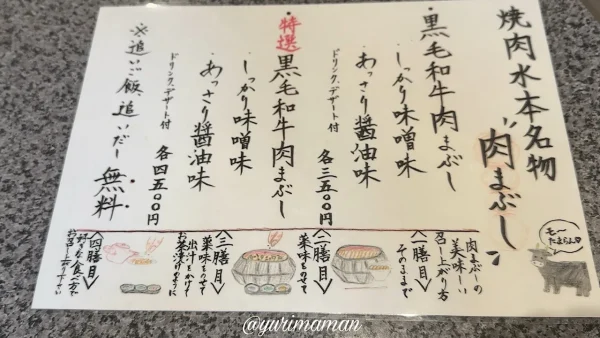 焼肉水本名物
"肉まぶし"
・黒毛和牛肉まぶし
・しっかり味噌味
・あっさり醤油味
ドリンク、デザート付
各三五〇〇円
・特選黒毛和牛肉まぶし
・しっかり味噌味
・あっさり醤油味
ドリンク、デザート付
各四五〇〇円
※追いご飯、追いだし無料
モ〜たまらん
肉まぶしの
美味しい
召し上がり方
〈一膳目〉
そのままで
〈二膳目〉
薬味をのせて
〈三膳目〉
薬味をのせて
出汁をかけて
お茶漬けのように
〈四膳目〉
好きな食べ方で
お召し上がり下さい
@yurimaman